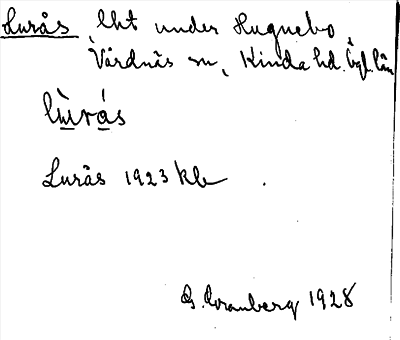 Lurås, lht under Hugnebo,
Vårdnäs sn, Kinda hd. Ögl. län
lu̇rás
Lurås 1923 kb
G. Cramberg 1928